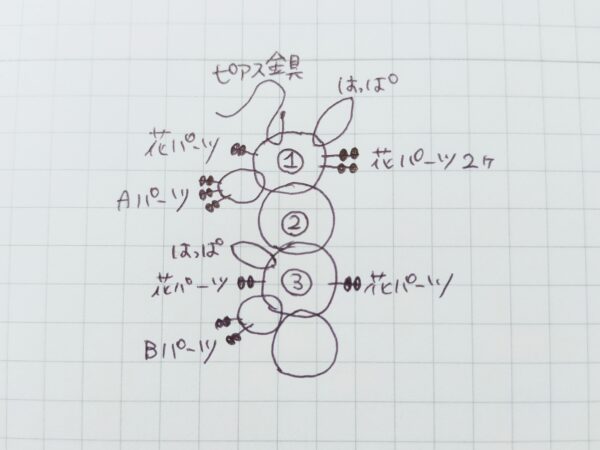 ピアス金具
はっぱ
花パーツ
①
花パーツ2ケ
Aパーツ
②
はっぱ
花パーツ
③
花パーツ
Bパーツ